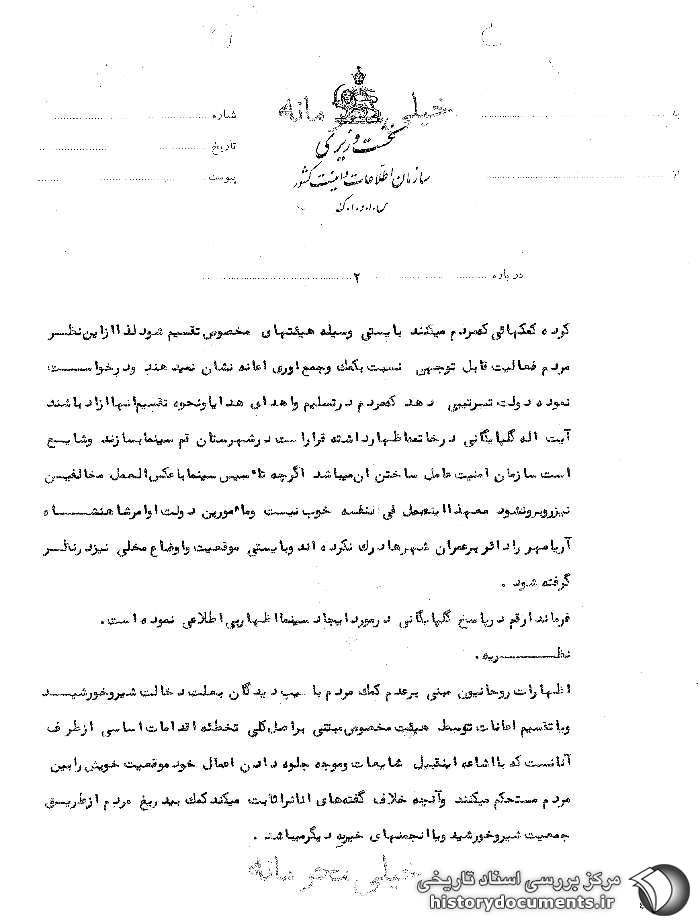 خیلی محرمانه
نخست وزیری
سازمان اطلاعات و امنیت کشور
س.ا.و.ا.ک
شماره
تاریخ
پیوست
به
از
درباره ۲
کرده کمکهائی که مردم میکنند بایستی وسیله هیئتهای مخصوص تقسیم شود لذا از این نظر
مردم فعالیت قابل توجهی نسبت بکمک وجمع اوری اعانه نشان نمیدهند ودرخواست
نموده دولت ترتیبی دهد که مردم در تسلیم واهدای هدایا ونحوه تقسیم انها ازاد باشند
آیت اله گلپایگانی در خاتمه اظهار داشته قرار است در شهرستان قم سینما بسازند وشایع
است سازمان امنیت عامل ساختن ان میباشد اگرچه تاسیس سینما با عکس العمل مخالفین
نیز روبرو نشود معهذا اینعمل فی نفسه خوب نیست ومامورین دولت اوامر شاهنشاه
آریامهر را دائر بر عمران شهرها درک نکرده اند وبایستی موقعیت واوضاع محلی نیز در نظر
گرفته شود .
فرماندار قم در پاسخ گلپایگانی در مورد ایجاد سینما اظهار بی اطلاعی نموده است.
نظریه .
اظهارات روحانیون مبنی بر عدم کمک مردم باسیب دیدگان بعلت دخالت شیروخورشید
ویا تقسیم اعانات توسط هیئت مخصوص مبتنی بر اصل کلی تخطئه اقدامات اساسی از طرف
آنانست که با اشاعه اینقبیل شایعات وموجه جلوه دادن اعمال خود موقعیت خویش را بین
مردم مستحکم میکنند وآنچه خلاف گفته های انانرا ثابت میکند کمک بیدریغ مردم از طریق
جمعیت شیروخورشید ویا انجمنهای خیریه دیگر میباشد .
خیلی محرمانه
مرکز بررسی اسناد تاریخی
historydocuments.ir